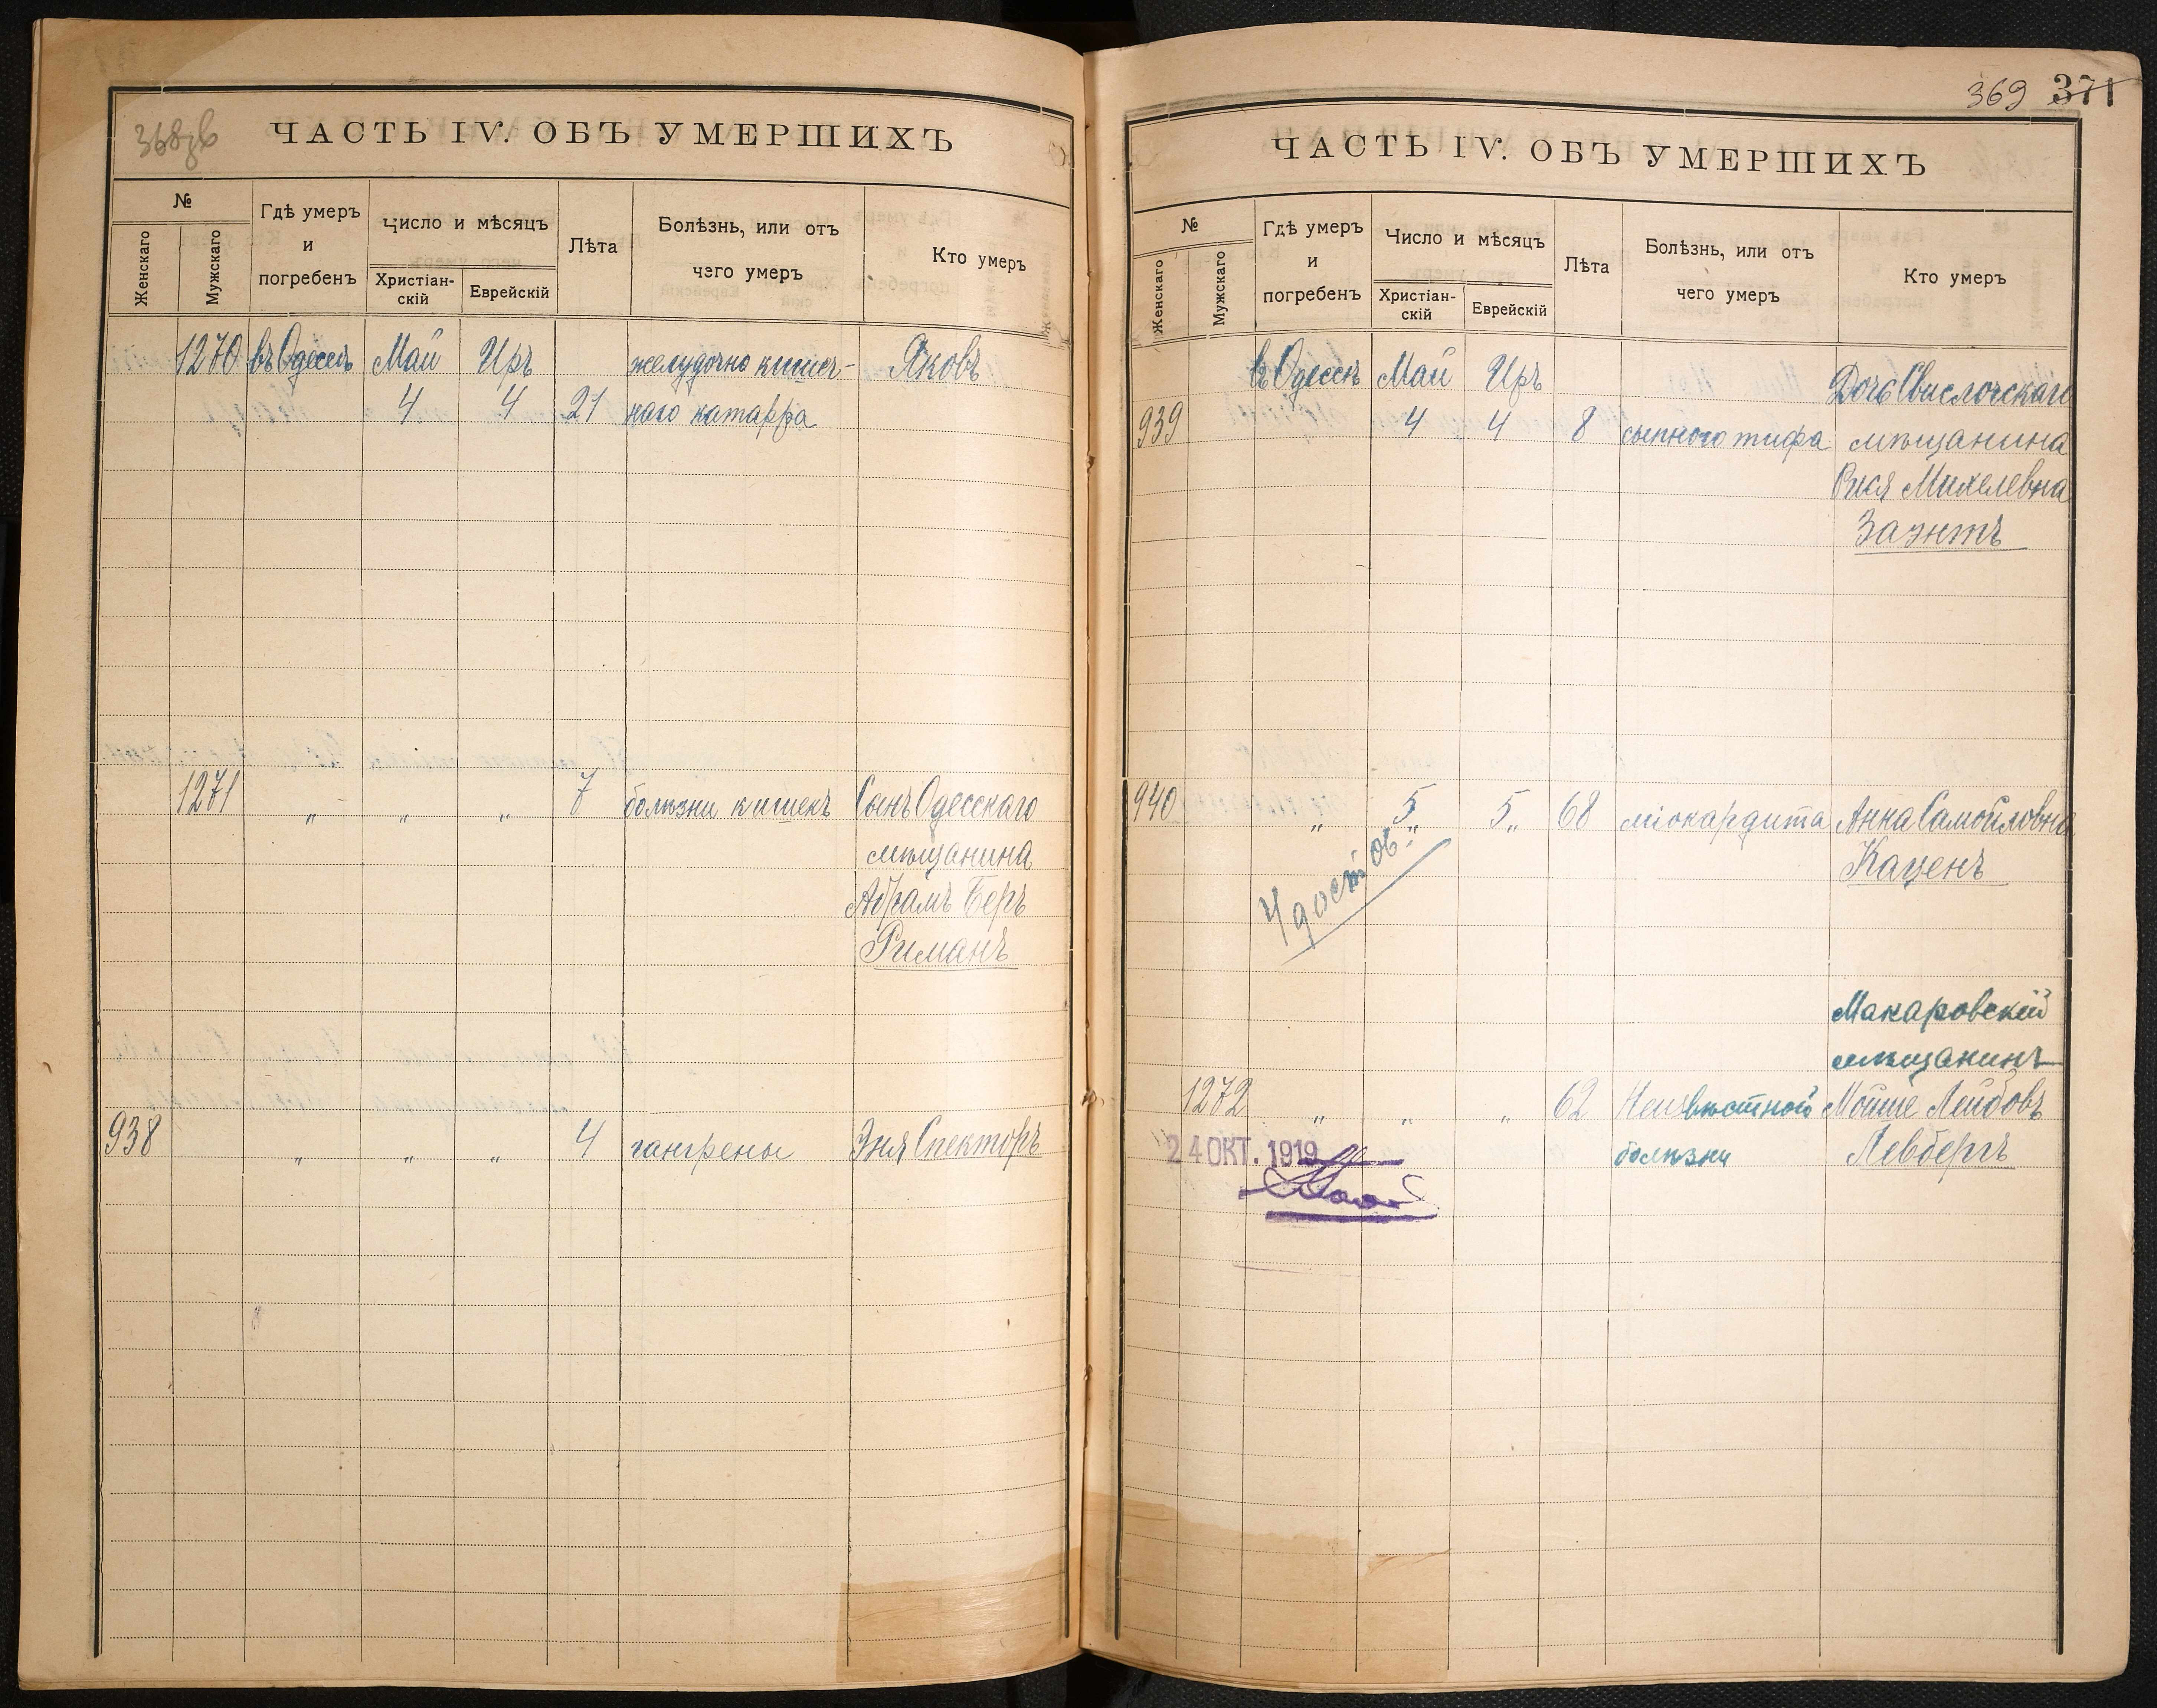 368зв
ЧАСТЬ IV. ОБЪ УМЕРШИХЪ
№
Женскаго
Мужскаго
Гдѣ умеръ
и
погребенъ
Число и мѣсяцъ
Христіан-
скій
Еврейскій
Лѣта
Болѣзнь, или отъ
чего умеръ
Кто умеръ
1270 въ Одессѣ Май Иръ желудочно кишеч- Яковъ
4 4 21 наго катарра
1271 „ „ „ 7 болѣзни кишекъ Сынъ Одесскаго
мѣщанина
Абрамъ Беръ
Риманъ
938 „ „ „ 4 гангрены Эня Спекторъ
369 371
ЧАСТЬ IV. ОБЪ УМЕРШИХЪ
№
Женскаго
Мужскаго
Гдѣ умеръ
и
погребенъ
Число и мѣсяцъ
Христіан-
скій
Еврейскій
Лѣта
Болѣзнь, или отъ
чего умеръ
Кто умеръ
въ Одессѣ Май Иръ Дочь Свислочскаго
939 4 4 8 сыпного тифа мѣщанина
Михелевна
Заэнтъ
940 „ 5„ 5„ 68 міокардита Анна Самойловна
Каценъ
Удостов.
Макаровскій
мѣщанинъ
1272 „ „ „ 62 Неизвѣстной Мойше Лейбовъ
болѣзни Левбергъ
24 ОКТ. 1919